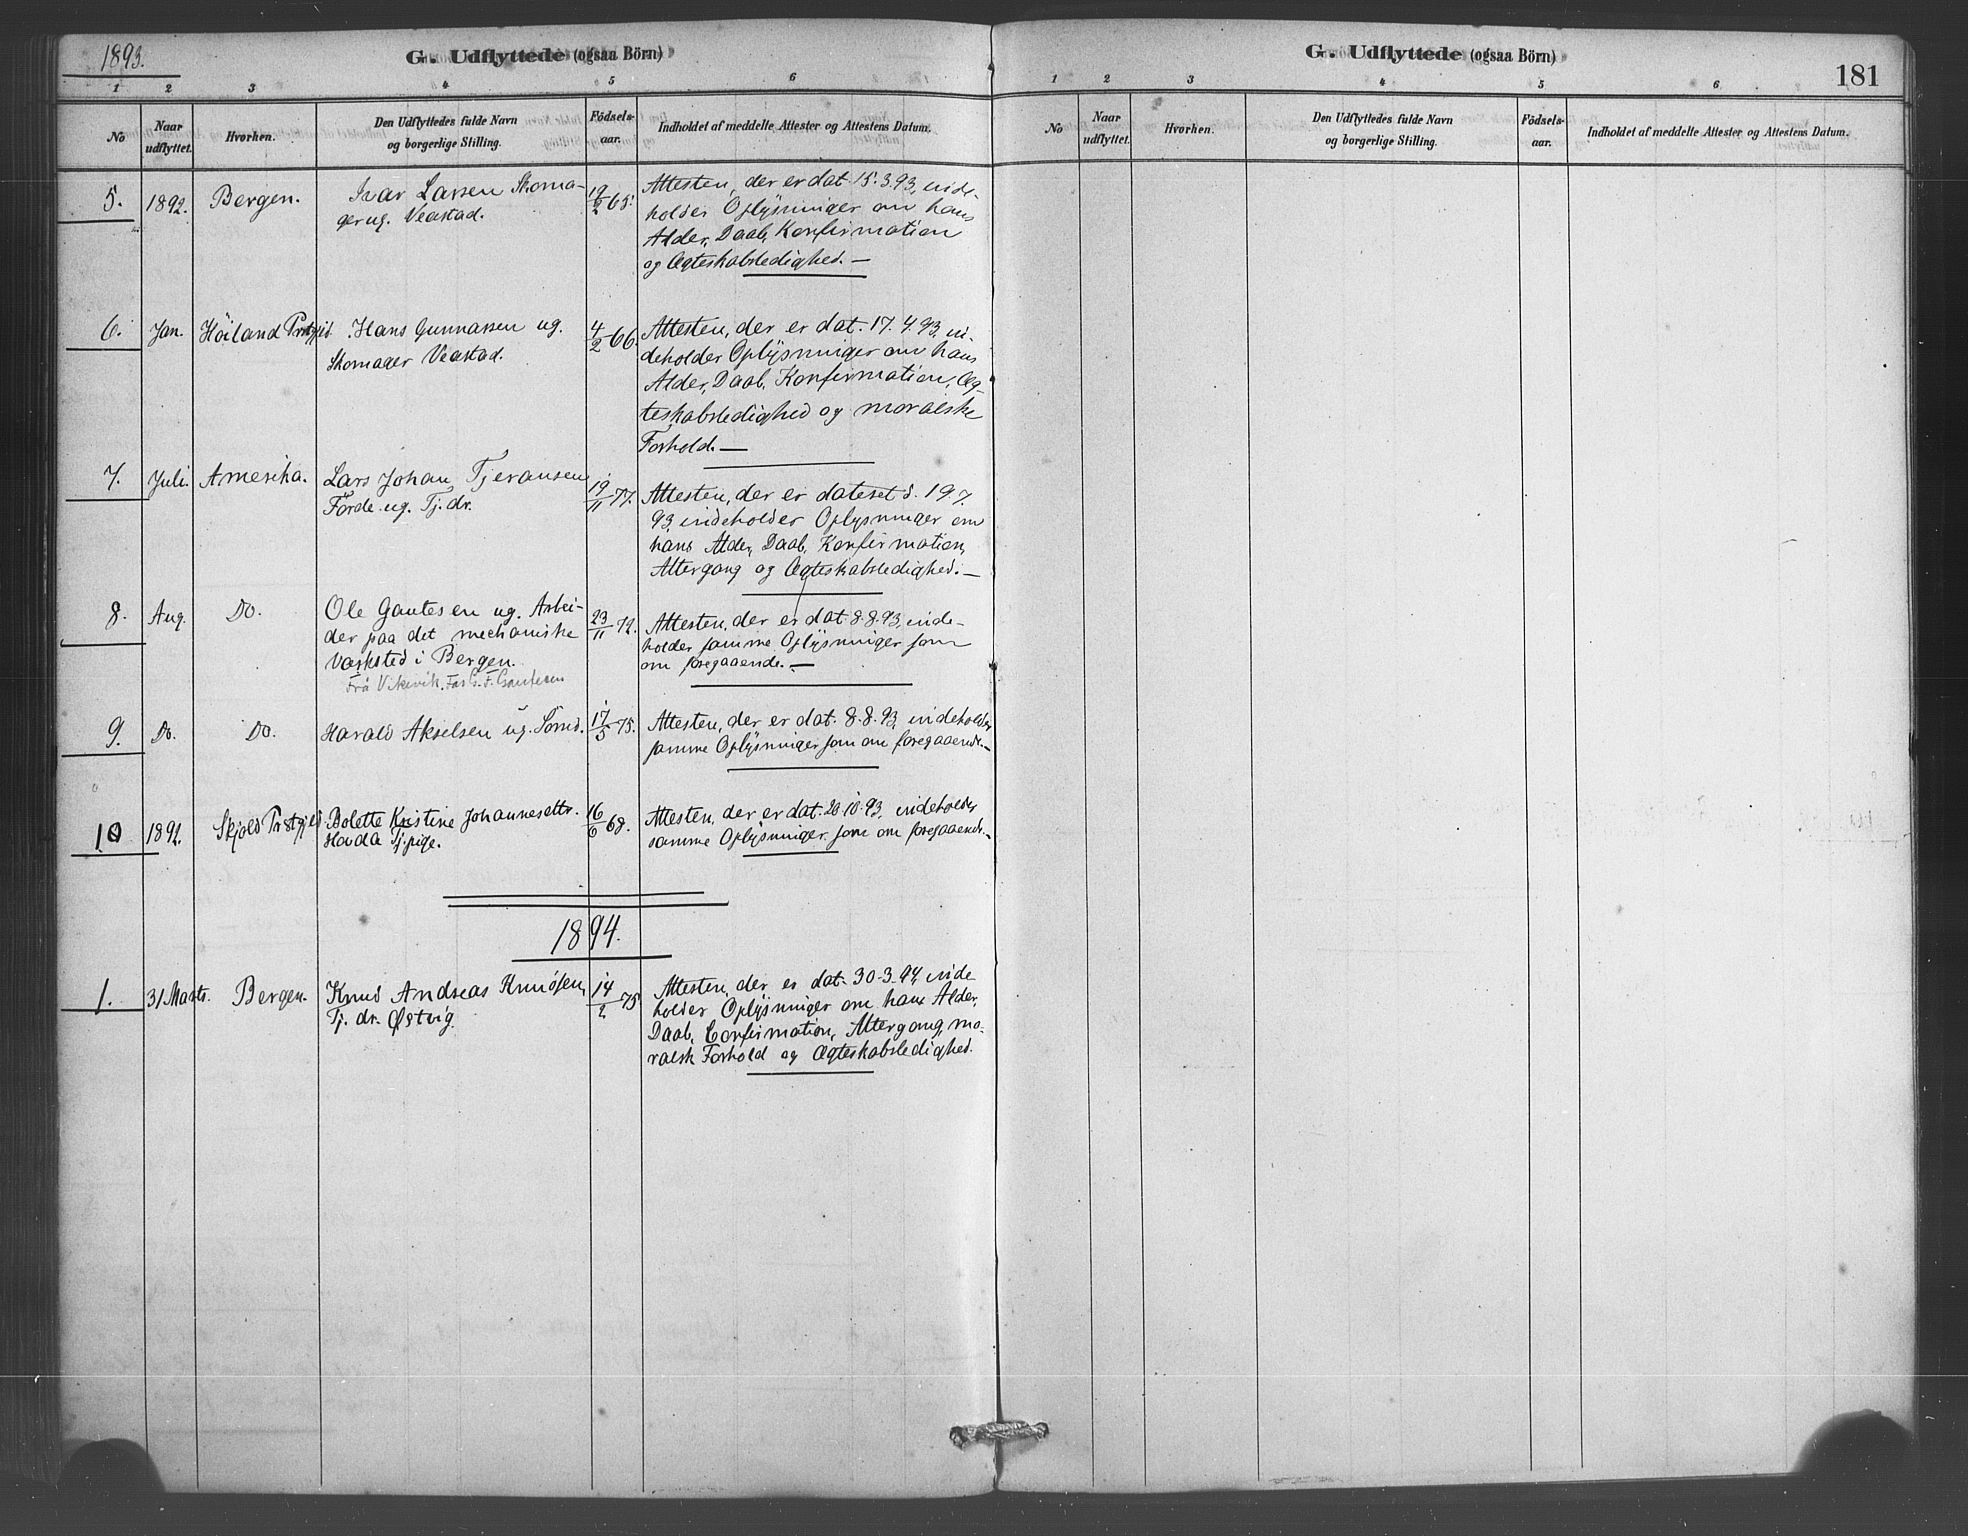 1893.
G. Udflyttede (ogsaa Börn)
1 2 3 4 5 6
No
Naar udflyttet.
Hvorhen.
Den Udflyttedes fulde Navn
og borgerlige Stilling.
Födsels-
aar.
Indholdet af meddelte Attester og Attestens Datum.
5. 1892. Bergen. Ivar Larsen Skoma-
ger ug. Veastad.
19/2 65.
Attesten, der er dat. 15.3.93, inde-
holder Oplysninger om hans
Alder, Daab, Konfirmation
og Ægteskabsledighed. —
6. Jan. Höiland Prstgjld. Hans Gunnarsen ug.
Skomager Veastad.
4/2 66.
Attesten, der er dat. 17.4.93, in-
deholder Oplysninger om hans
Alder, Daab, Konfirmation, Æg-
teskabsledighed og moralske
Forhold. —
7. Juli. Amerika. Lars Johan Tjeransen
Förde ug. Tj. dr.
19/11 77.
Attesten, der er dateret d. 19.7.
93, indeholder Oplysninger om
hans Alder, Daab, Konfirmation,
Altergang og Ægteskabsledighed. —
8. Aug. Do. Ole Gautesen ug. Arbei-
der paa det mechaniske
Værksted i Bergen.
Frå Vikevik. Far G. F. Gautesen
23/11 72.
Attesten, der er dat. 8.8.93, inde-
holder samme Oplysninger som
om foregaaende. —
9. Do. Do. Harald Akselsen ug. Sömd.
17/5 75.
Attesten, der er dat. 8.8.93, indeholder
samme Oplysninger som om foregaaende. —
10 1892. Skjold Prstgjeld. Bolette Kristine Johannesdttr.
Hovda Tj. pige.
16/6 68.
Attesten, der er dat. 20.10.93, indeholder
samme Oplysninger som om foregaaende. —
1894.
1. 31 Marts. Bergen. Knud Andreas Knudsen,
Tj. dr. Østvig.
14/2 75
Attesten, der er dat. 30.3.94, inde
holder Oplysninger om hans Alder,
Daab, Confirmation, Altergang, mo-
ralsk Forhold og Ægteskabsledighed.
G. Udflyttede (ogsaa Börn)
181
1 2 3 4 5 6
No
Naar udflyttet.
Hvorhen.
Den Udflyttedes fulde Navn
og borgerlige Stilling.
Födsels-
aar.
Indholdet af meddelte Attester og Attestens Datum.